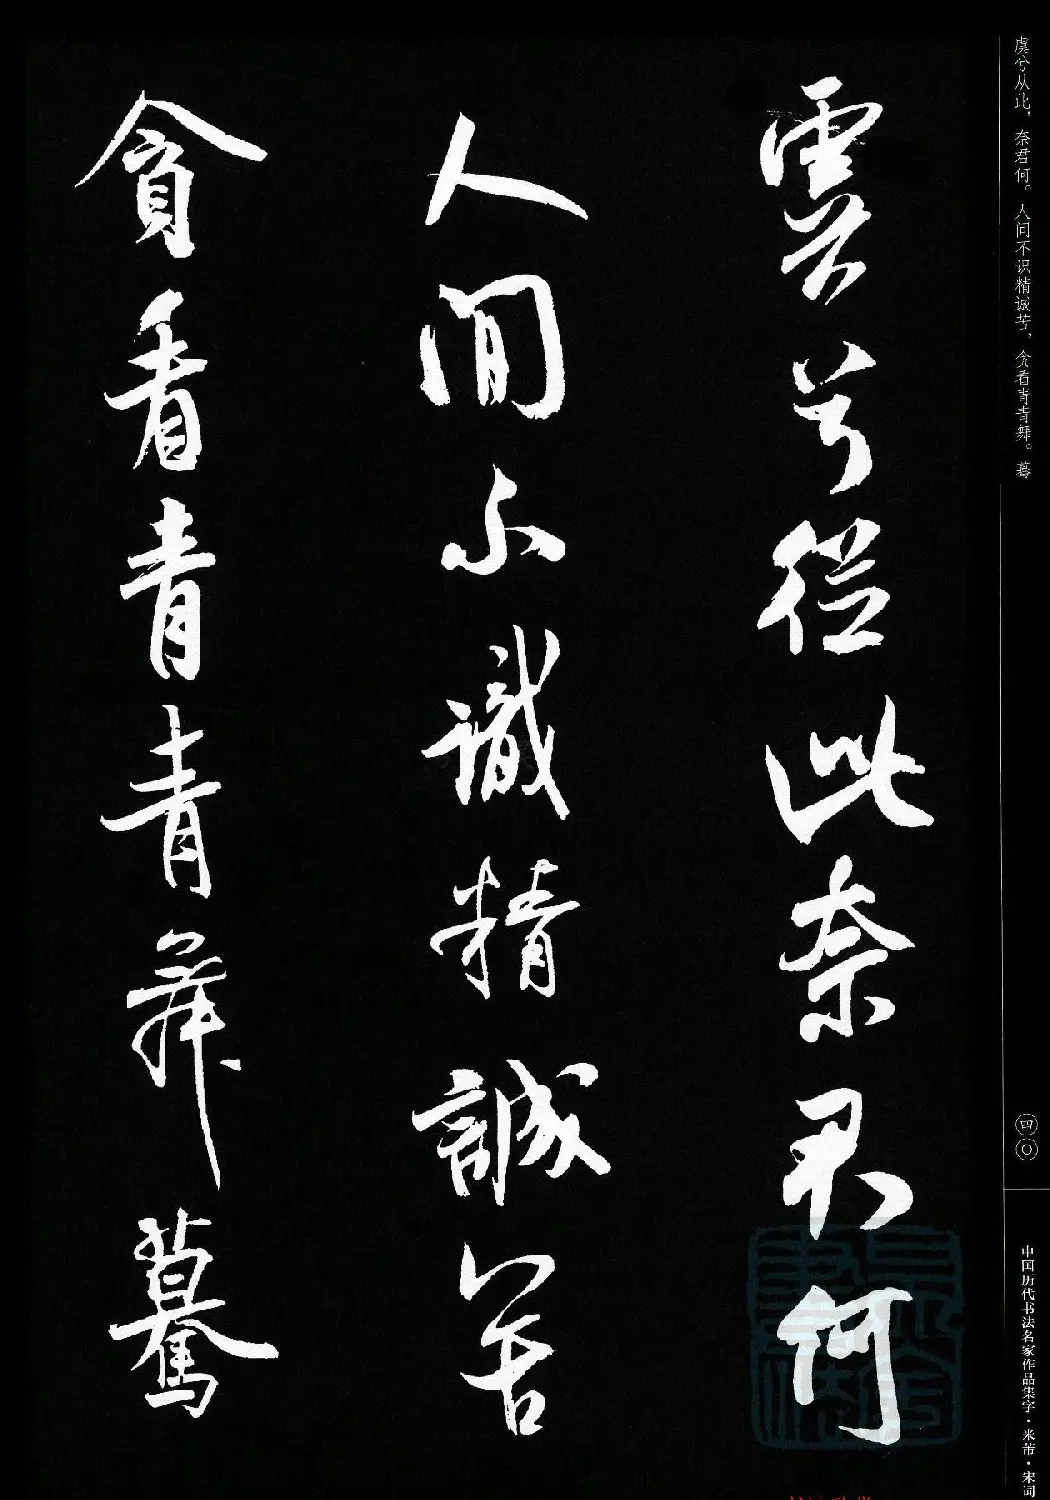 虞兮从此，奈君何。人间不识精诚苦，贪看青青舞。蓦
虞兮從此奈君何
人間不識精誠苦
貪看青青舞驀
四〇
中国历代书法名家作品集字·米芾·宋词